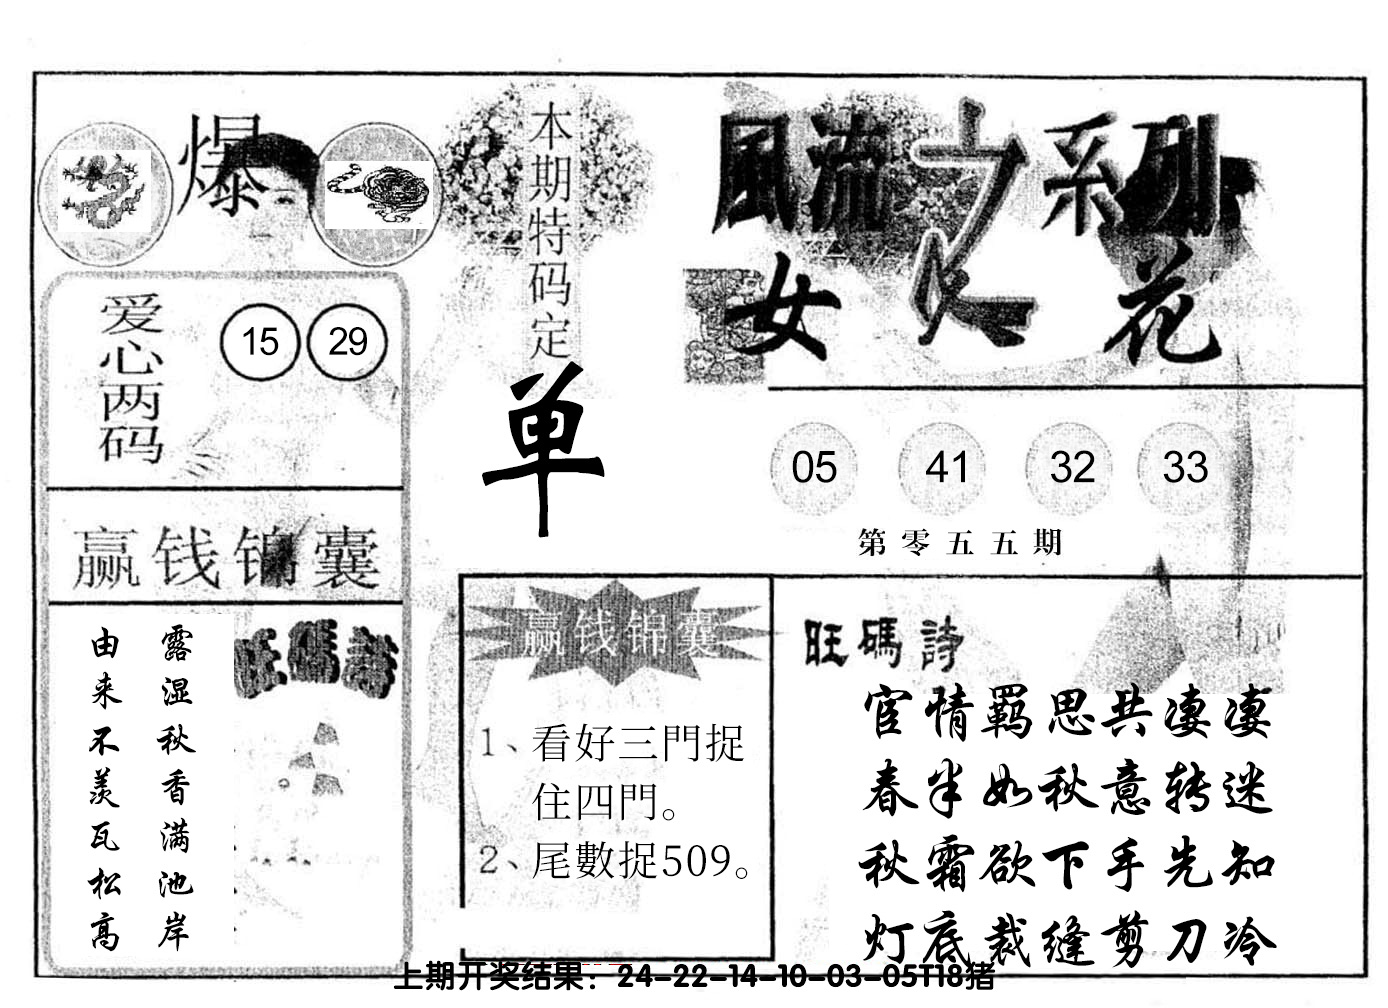 爆
本期特码定
单
風流之系列
女人花
爱心两码
15 29
05 41 32 33
第零五五期
赢钱锦囊
露湿秋香满池岸
由来不羡瓦松高
旺碼詩
赢钱锦囊
1、看好三門捉
住四門。
2、尾數捉509。
旺碼詩
宦情羁思共凄凄
春半如秋意转迷
秋霜欲下手先知
灯底裁缝剪刀冷
上期开奖结果：24-22-14-10-03-05T18猪